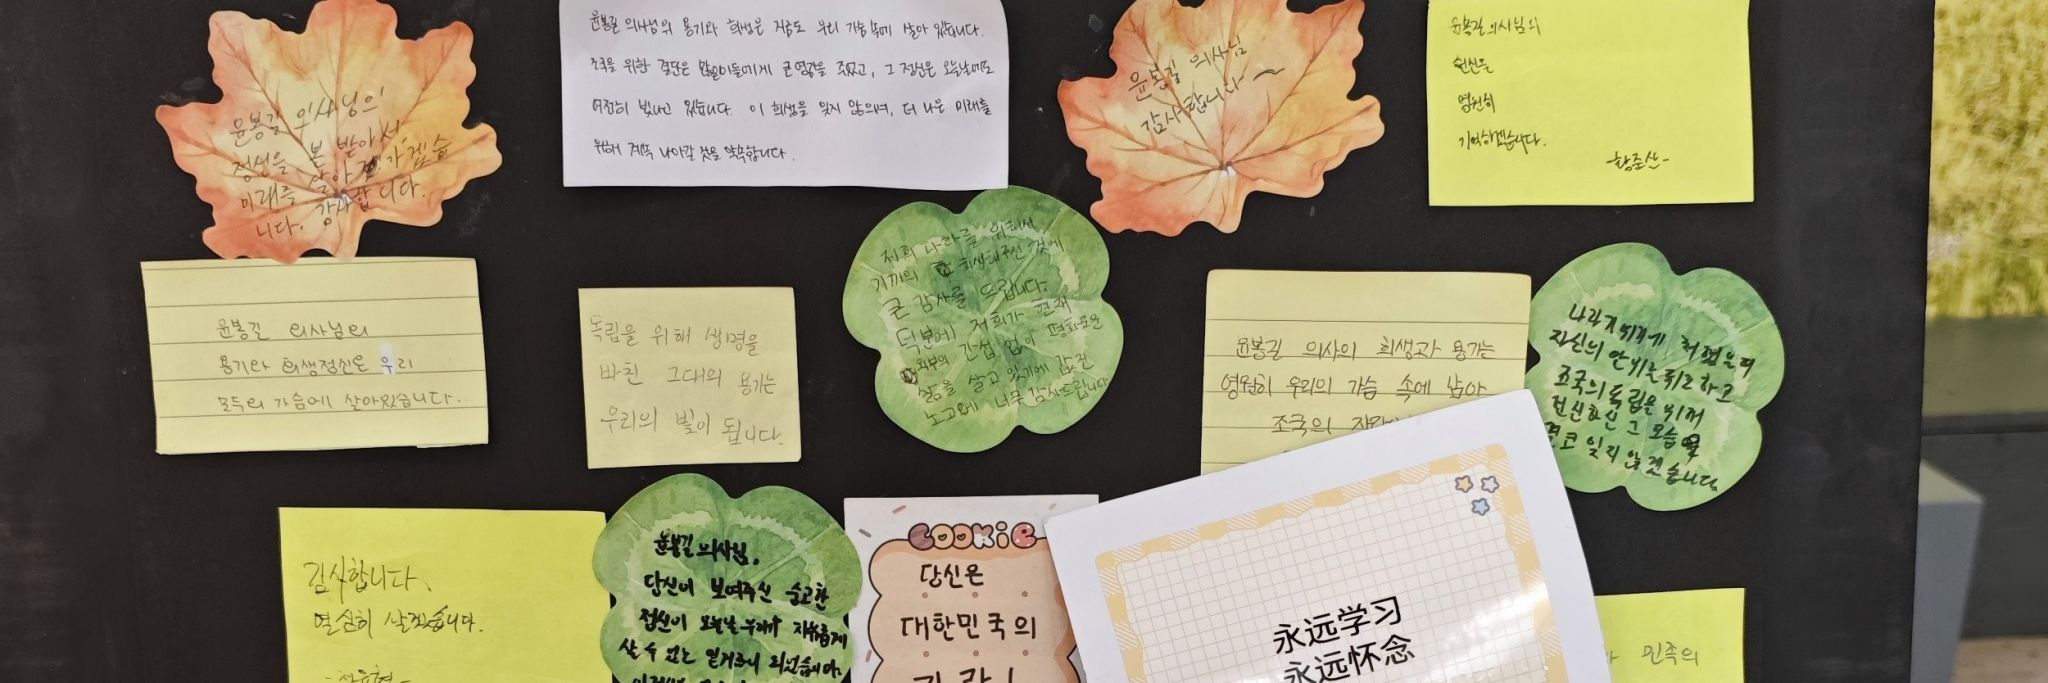 윤봉길 의사님의
정신을 본 받아서
미래를 살아가겠습
니다. 감사합니다.
윤봉길 의사님의 용기와 희생은 지금도 우리 가슴 속에 살아 있습니다.
조국을 위한 결단은 많은이들에게 큰 영감을 주었고, 그 정신은 오늘날에도
여전히 빛나고 있습니다. 이 희생을 잊지 않으며, 더 나은 미래를
위해 계속 나아갈 것을 약속합니다.
윤봉길 의사님
감사합니다~
윤봉길 의사님의
헌신을
영원히
기억하겠습니다.
-황준산-
윤봉길 의사님의
용기와 희생정신은 우리
모두의 가슴에 살아있습니다..
독립을 위해 생명을
바친 그대의 용기는
우리의 빛이 됩니다.
저희 나라를 위해서
기꺼이 희생해주신 것에
큰 감사를 드립니다.
덕분에 저희가 현재
외부의 간섭 없이 평화로운
삶을 살고 있기에 값진
노고에 너무 감사드립니다
윤봉길 의사의 희생과 용기는
영원히 우리의 가슴 속에 남아
조국의
나라가 위기에 처했을때
자신의 안위는 뒤로하고
조국의 독립을 위해
헌신하신 그 모습
결코 잊지 않겠습니다
감사합니다.
열심히 살겠습니다.
윤봉길 의사님,
당신이 보여주신 숭고한
정신이 오늘날 우리가 자유롭게
살 수 있는 밑거름이 되었습니다.
COOKIE
당신은
대한민국의
자랑!
永远学习
永远怀念
민족의